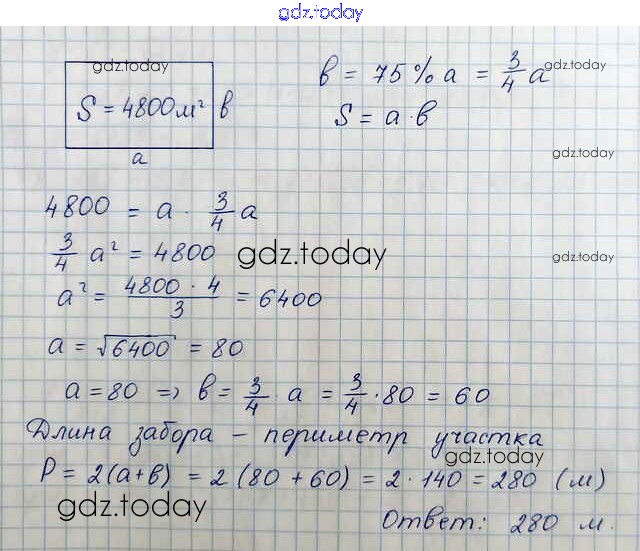 gdz.today
gdz.today
S = 4800 м² в
а
в = 75 % а = 3/4 а
gdz.today
S = а · в
gdz.today
4800 = а · 3/4 а
3/4 а² = 4800
gdz.today
gdz.today
а² = 4800 · 4 / 3 = 6400
gdz.today
а = √6400 = 80
а = 80 => в = 3/4 а = 3/4 · 80 = 60
Длина забора – периметр участка
gdz.today
P = 2(а+в) = 2 (80 + 60) = 2 · 140 = 280 (м)
gdz.today
Ответ: 280 м.